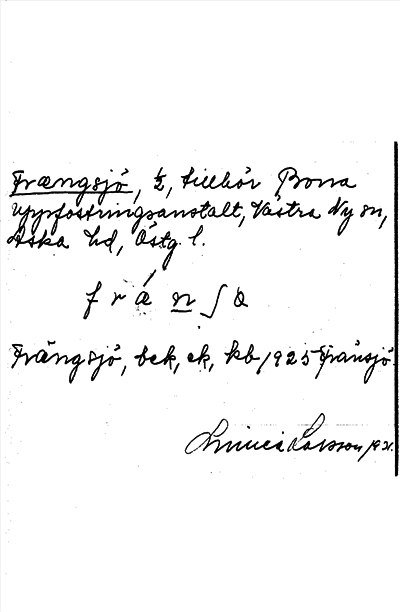 Frængsjö, ½, tillhör Bona
uppfostringsanstalt, Västra Ny sn,
Aska hd, Östg. l.
f r á n ʃ ö
Frängsjö, bek, ek, kb 1925 Fränsjö.
Linnéa Larsson 1931.